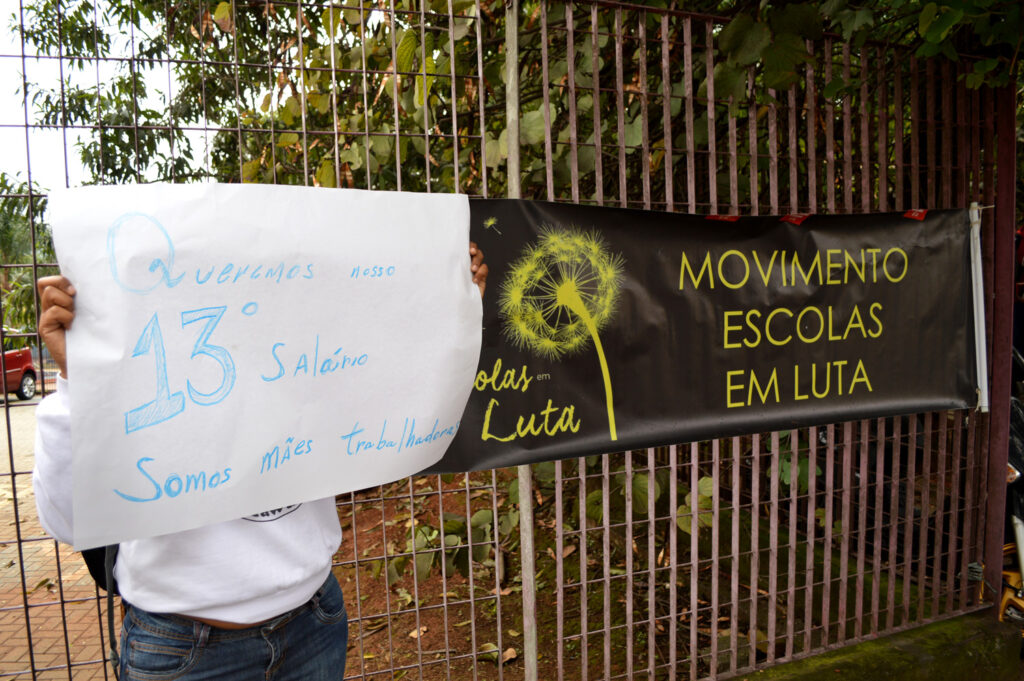 Queremos nosso
13° Salário
Somos mães trabalhadoras
olas em
Luta
MOVIMENTO
ESCOLAS
EM LUTA